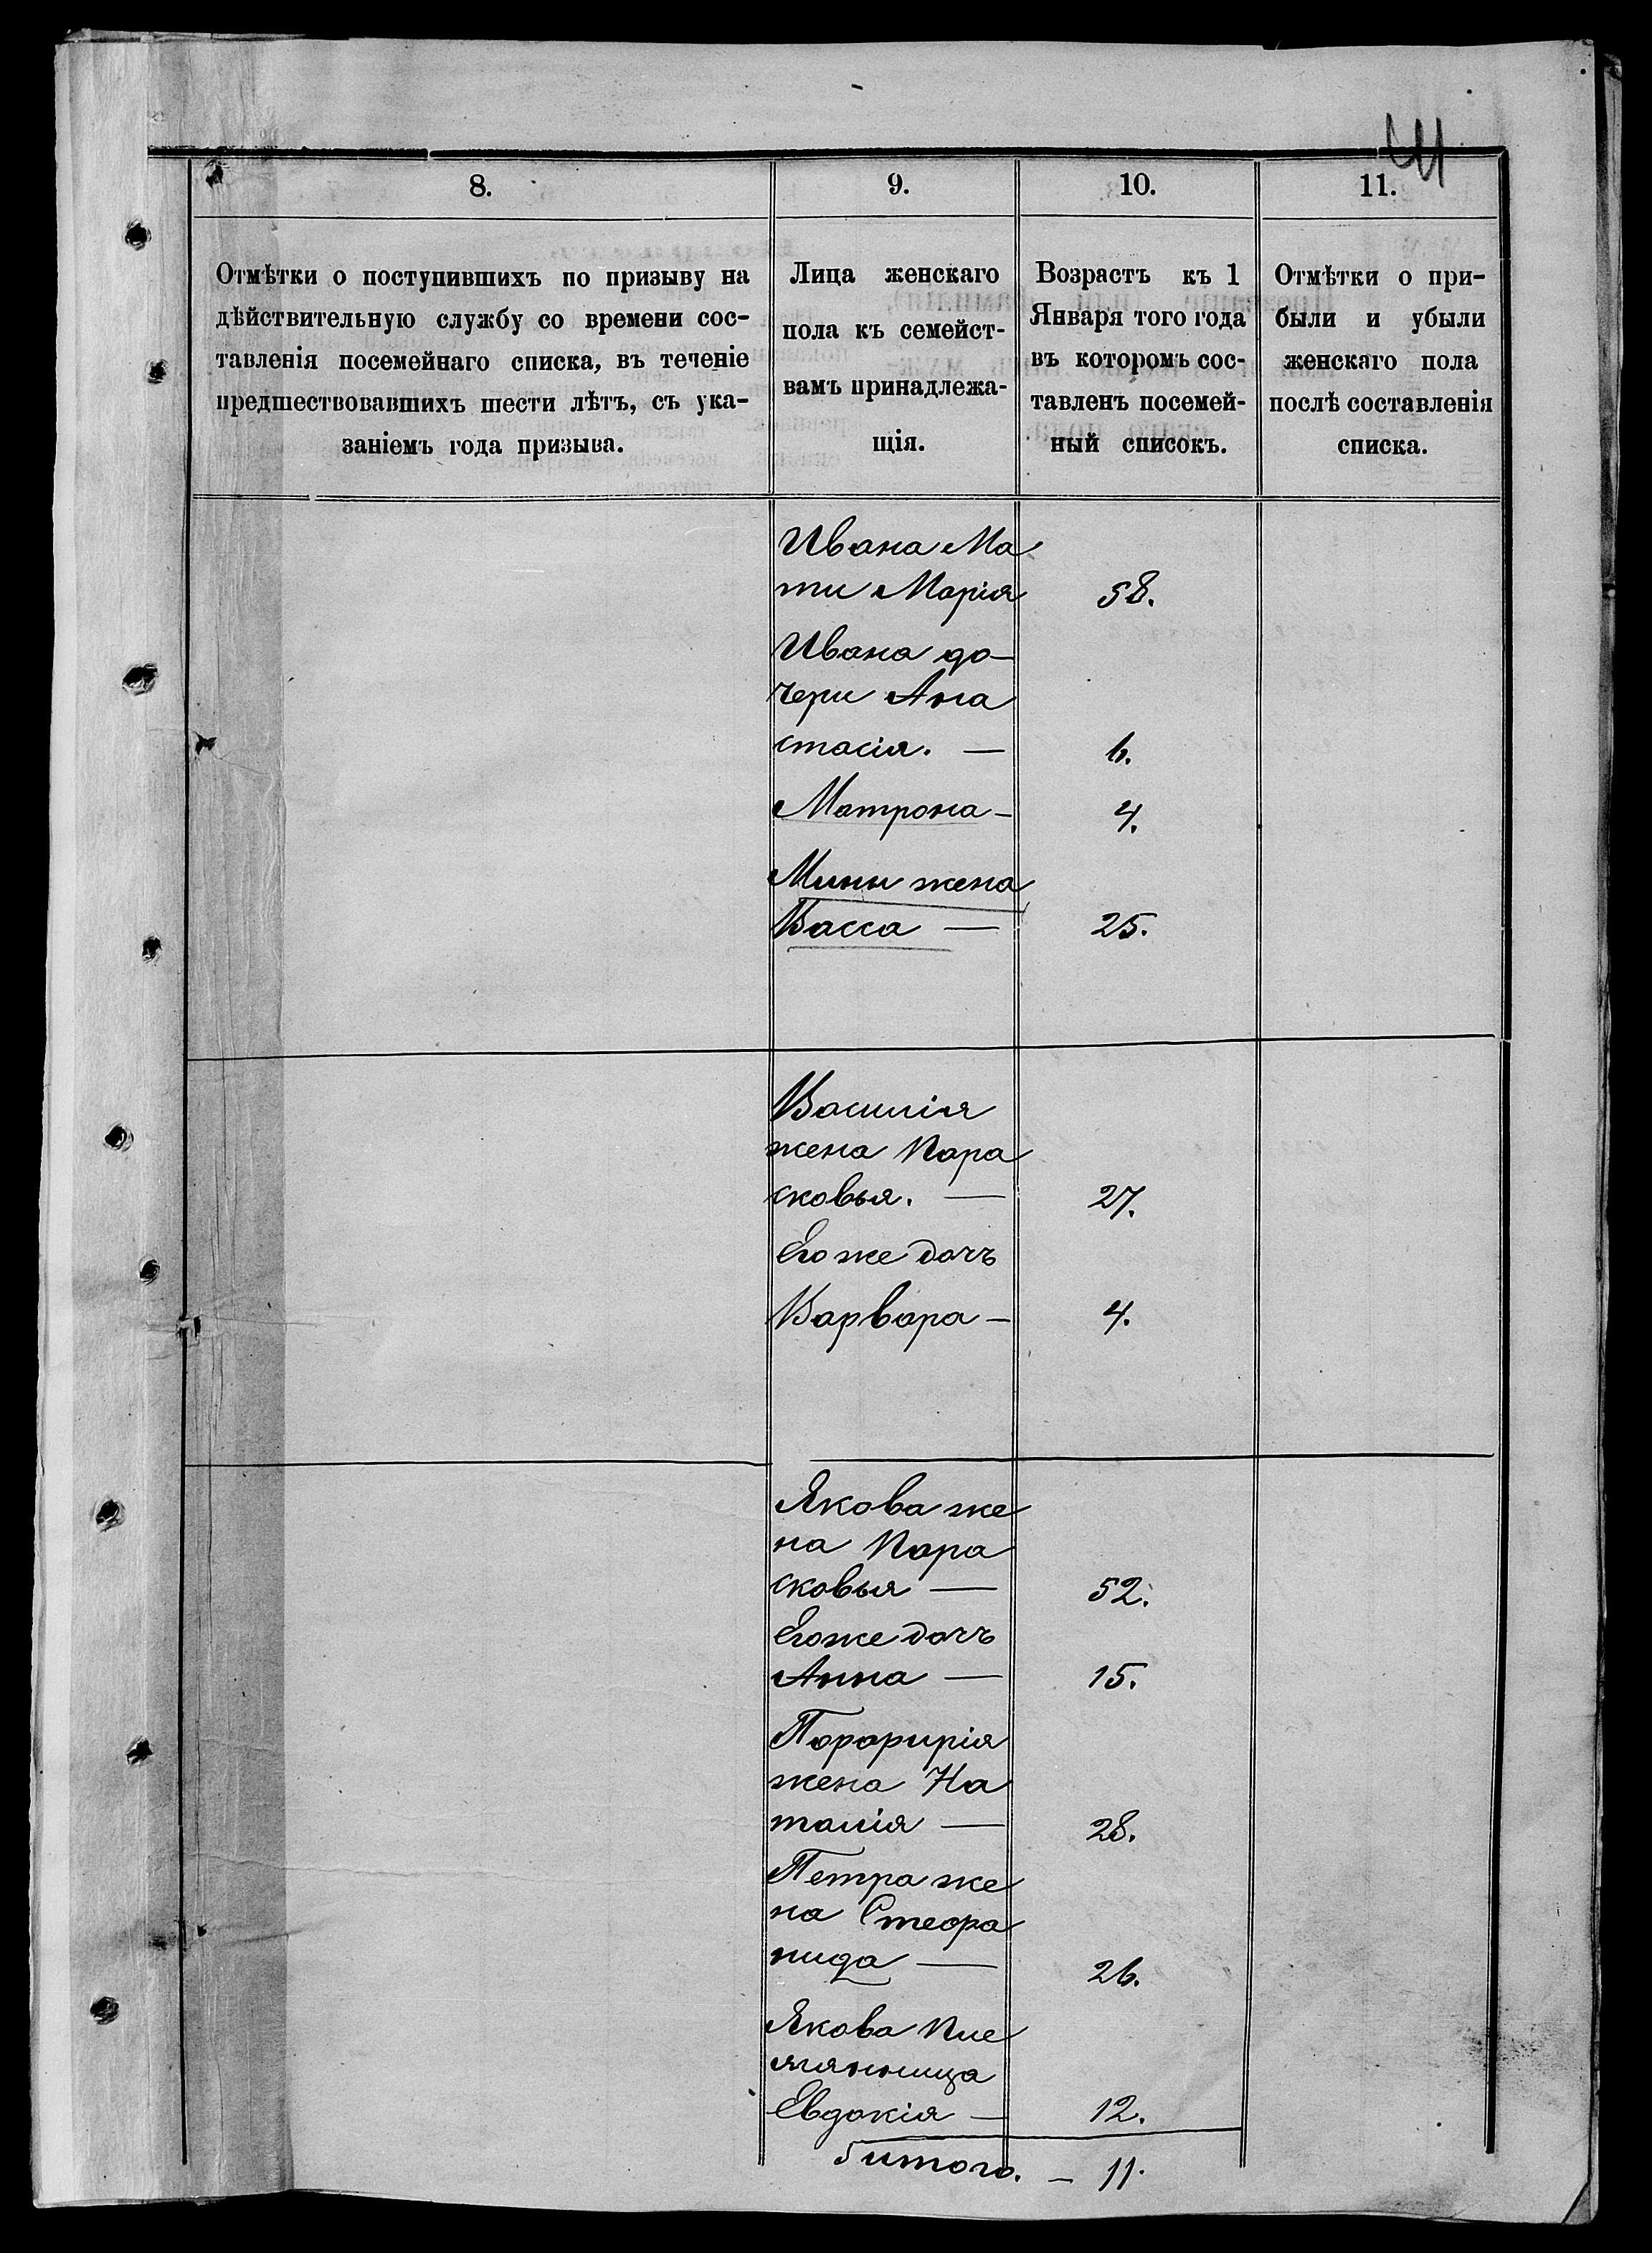 8. 9. 10. 11.
Отмѣтки о поступившихъ по призыву на
дѣйствительную службу со времени сос-
тавленія посемейнаго списка, въ теченіе
предшествовавшихъ шести лѣтъ, съ ука-
заніемъ года призыва.
Лица женскаго
пола къ семейст-
вамъ принадлежа-
щія.
Возрастъ къ 1
Января того года
въ которомъ сос-
тавленъ посемей-
ный списокъ.
Отмѣтки о при-
были и убыли
женскаго пола
послѣ составленія
списка.
Ивана Ма
ти Марія 58.
Ивана до-
чери Ана
стасія. — 6.
Матрона - 4.
Мины жена
Васса — 25.
Василія
жена Пара
сковья. — 27.
Его же дочь
Варвара - 4.
Якова же
на Пара
сковья — 52.
Его же дочь
Анна — 15.
Порфирія
жена На
талія — 28.
Петра же
на Стефа
нида — 26.
Якова Пле
мянница
Евдокія — 12.
итого. - 11.